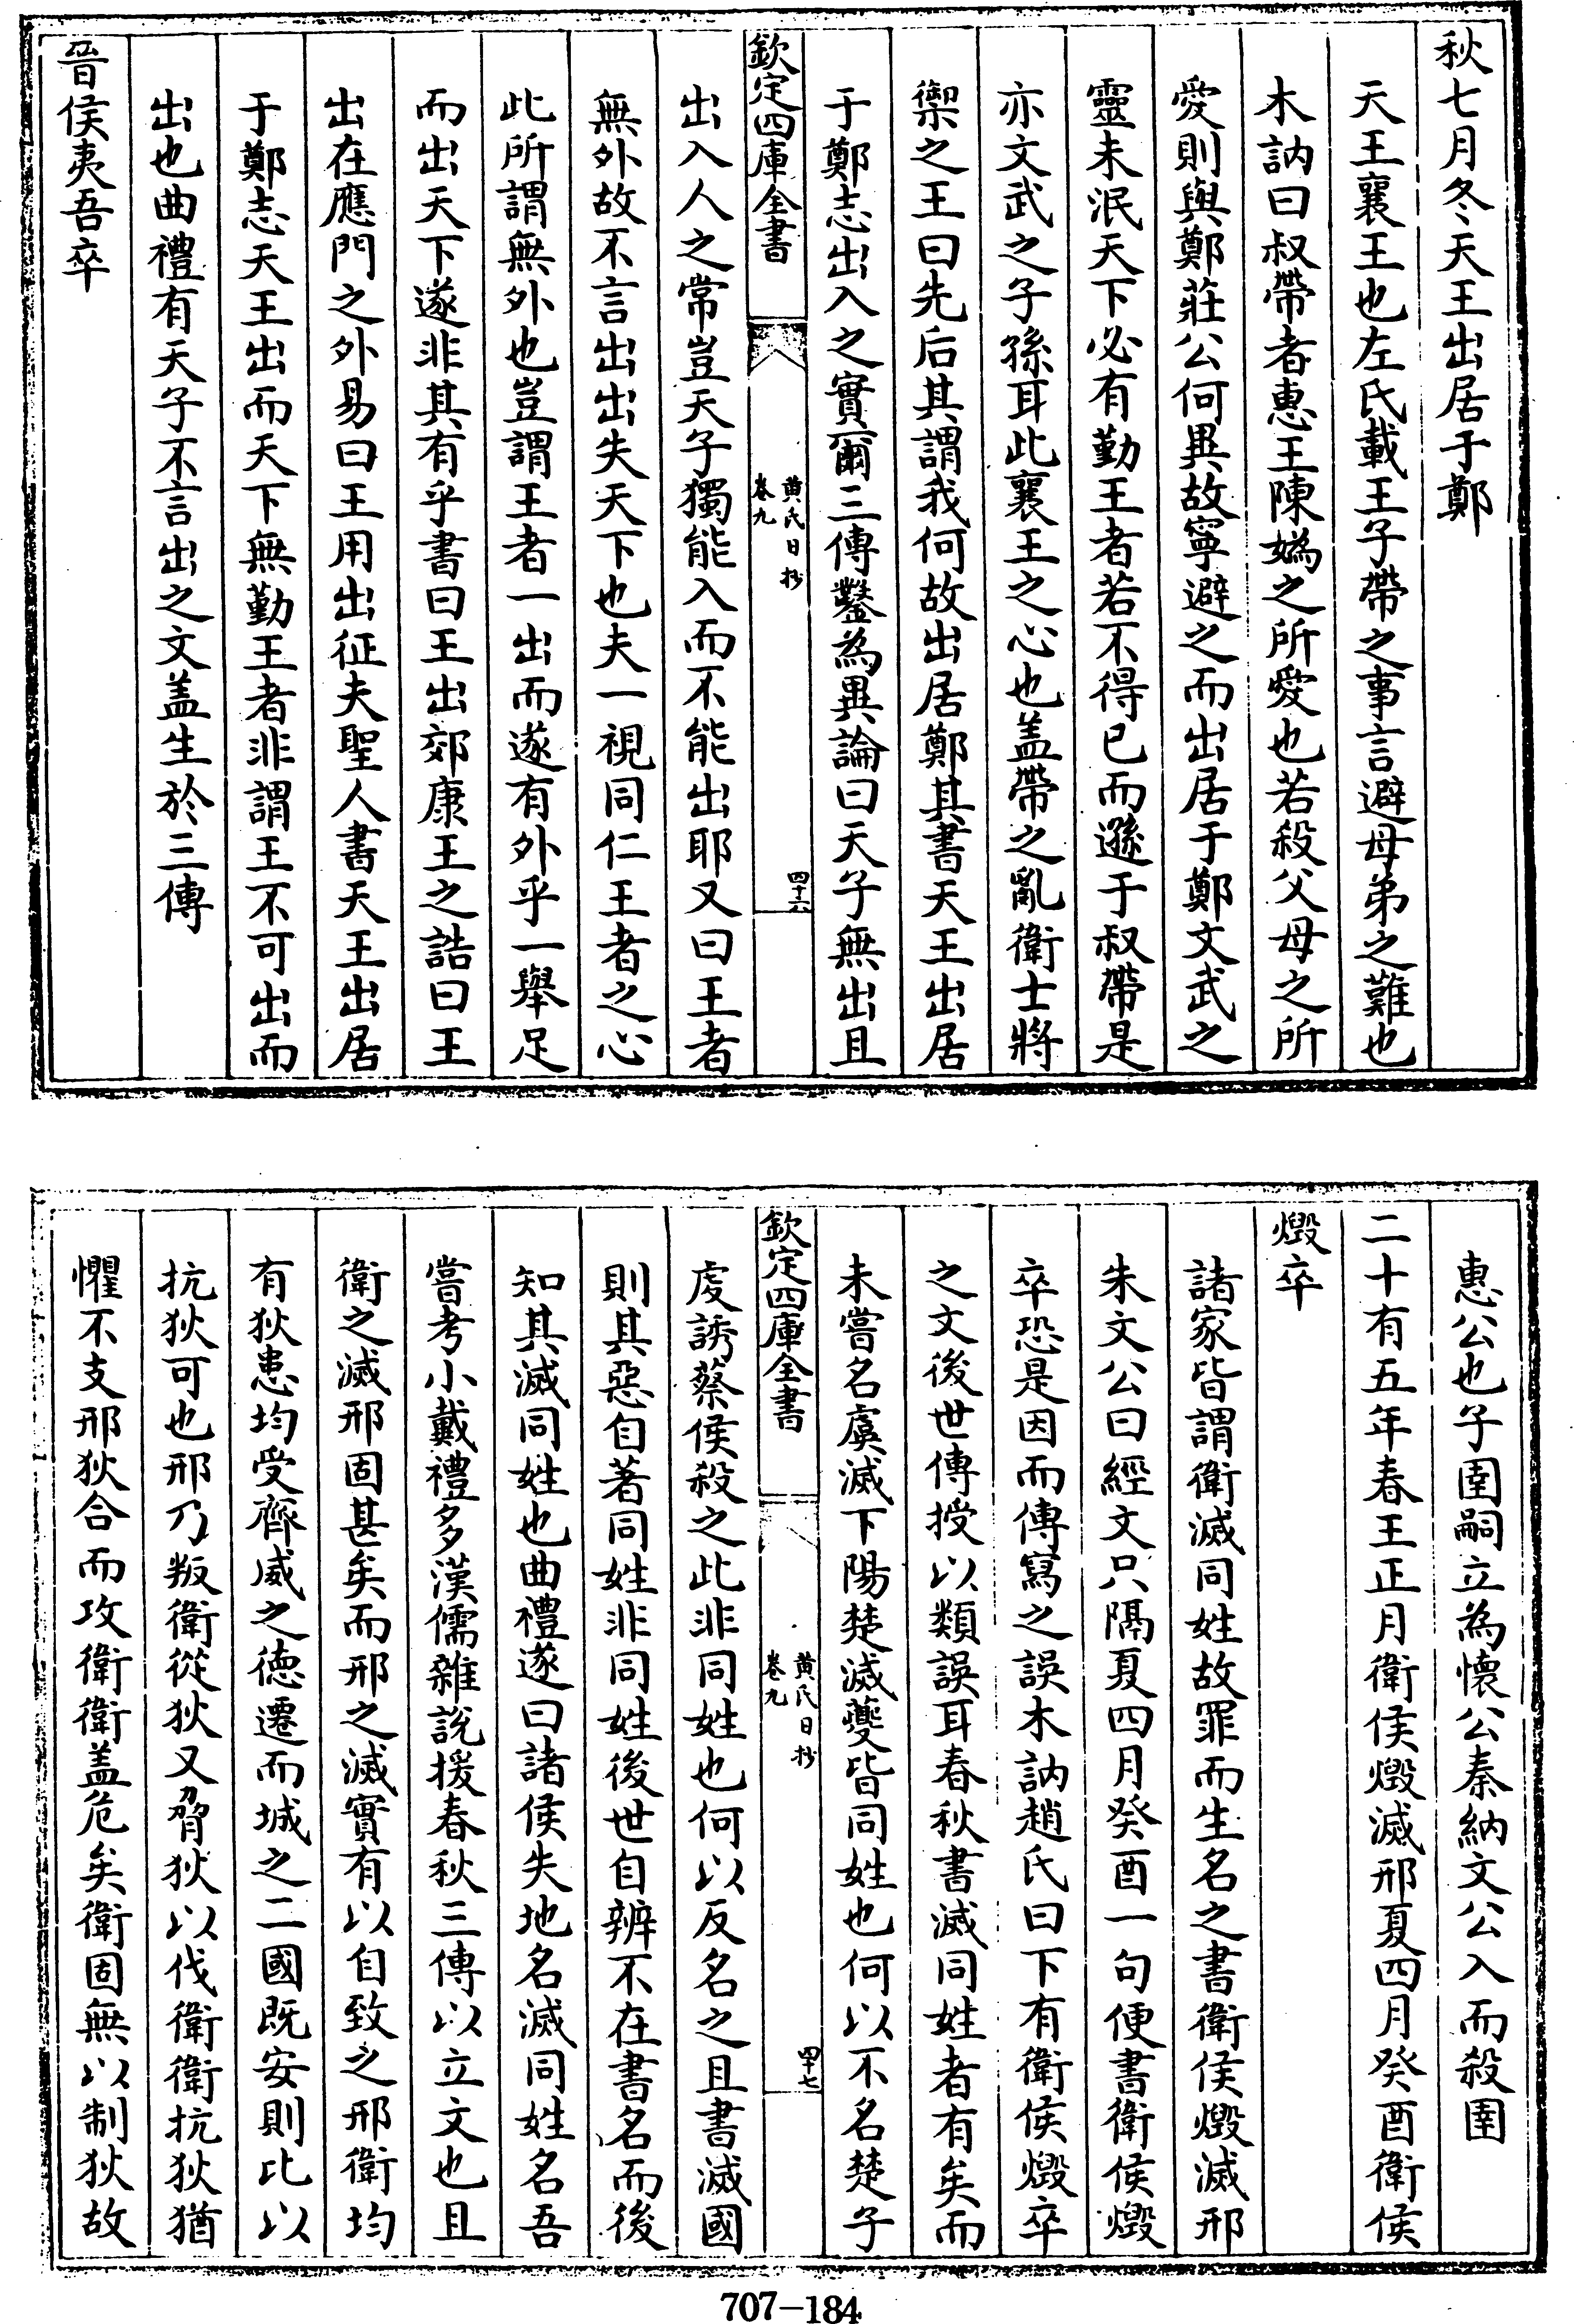 秋七月冬天王出居于鄭
天王襄王也左氏載王子帶之事言避母弟之難也
木訥曰叔帶者惠王陳媯之所愛也若殺父母之所
愛則與鄭莊公何異故寧避之而出居于鄭文武之
靈未泯天下必有勤王者若不得已而遜于叔帶是
亦文武之子孫耳此襄王之心也盖帶之亂衛士將
禦之王曰先后其謂我何故出居鄭其書天王出居
于鄭志出入之實爾三傳鑿為異論曰天子無出且
欽定四庫全書
黄氏日抄
卷九
四十六
出入人之常豈天子獨能入而不能出耶又曰王者
無外故不言出出失天下也夫一視同仁王者之心
此所謂無外也豈謂王者一出而遂有外乎一舉足
而出天下遂非其有乎書曰王出郊康王之誥曰王
出在應門之外易曰王用出征夫聖人書天王出居
于鄭志天王出而天下無勤王者非謂王不可出而
出也曲禮有天子不言出之文盖生於三傳
晉侯夷吾卒
惠公也子圉嗣立為懷公秦納文公入而殺圉
二十有五年春王正月衛侯燬滅邢夏四月癸酉衛侯
燬卒
諸家皆謂衛滅同姓故罪而生名之書衛侯燬滅邢
朱文公曰經文只隔夏四月癸酉一句便書衛侯燬
卒恐是因而傳寫之誤木訥趙氏曰下有衛侯燬卒
之文後世傳授以類誤耳春秋書滅同姓者有矣而
未嘗名虞滅下陽楚滅夔皆同姓也何以不名楚子
欽定四庫全書
黄氏日抄
卷九
四十七
虔誘蔡侯殺之此非同姓也何以反名之且書滅國
則其惡自著同姓非同姓後世自辨不在書名而後
知其滅同姓也曲禮遂曰諸侯失地名滅同姓名吾
嘗考小戴禮多漢儒雜說援春秋三傳以立文也且
衛之滅邢固甚矣而邢之滅實有以自致之邢衛均
有狄患均受齊威之德遷而城之二國既安則比以
抗狄可也邢乃叛衛從狄又脅狄以伐衛衛抗狄猶
懼不支邢狄合而攻衛衛盖危矣衛固無以制狄故
707-184